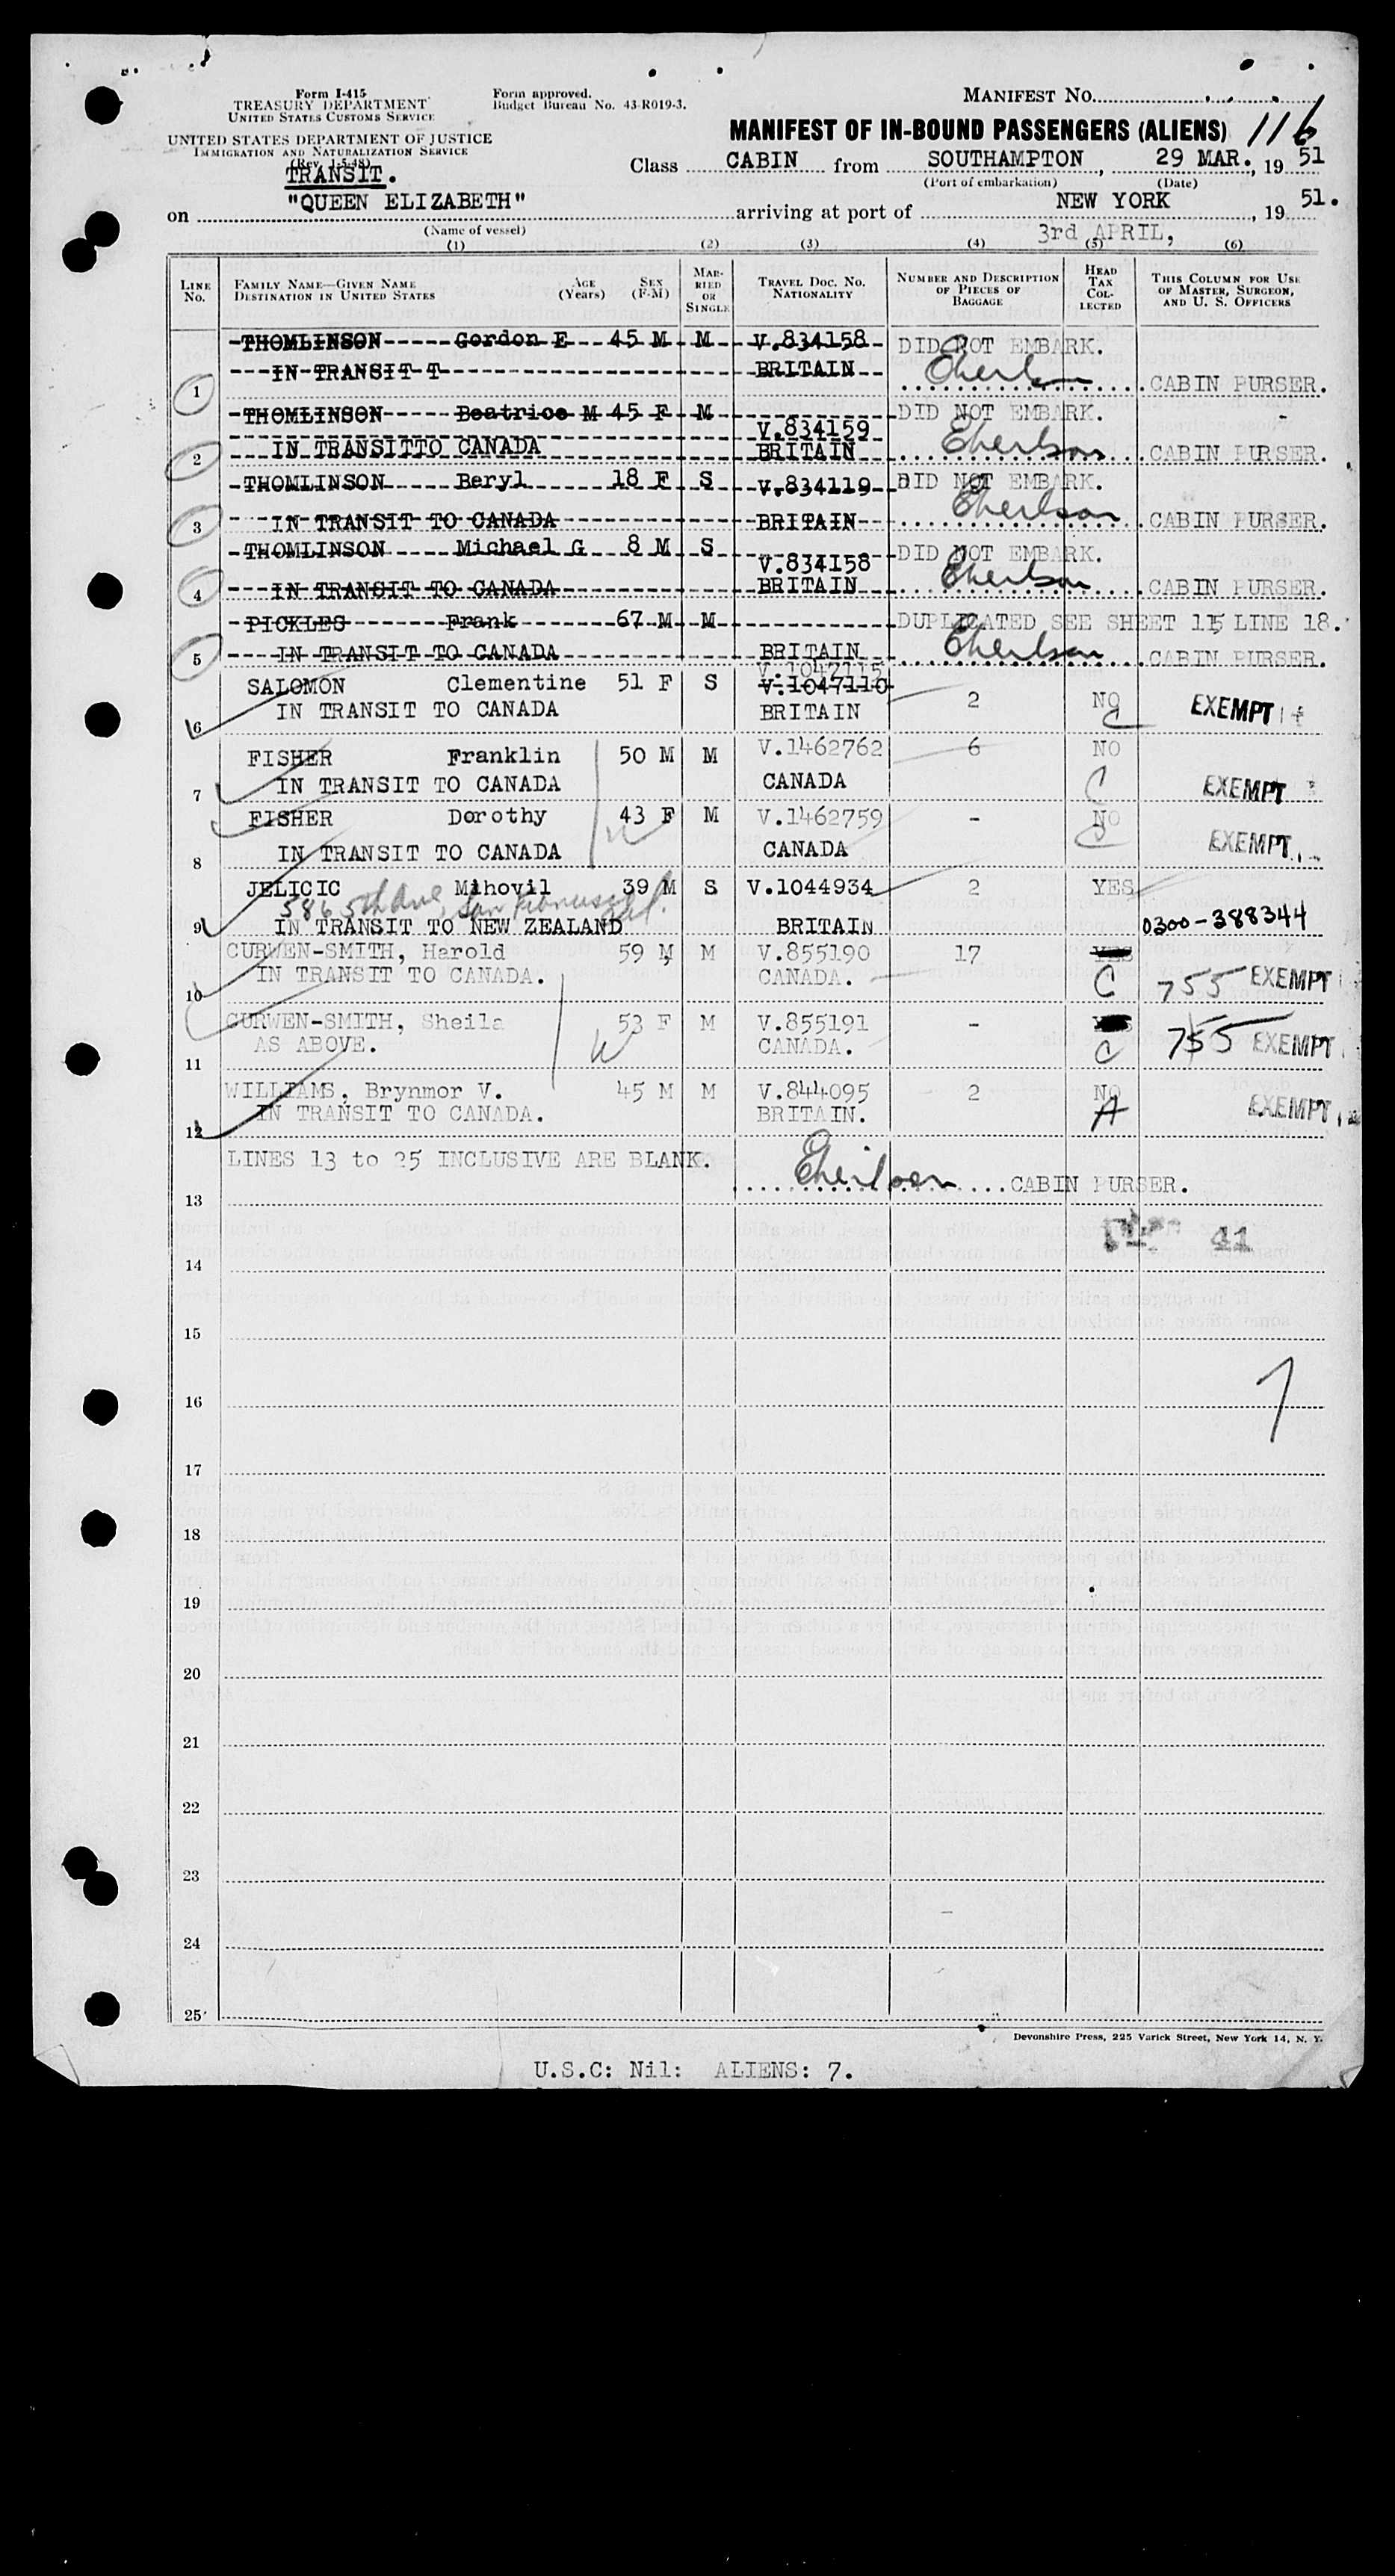 Form I-415
TREASURY DEPARTMENT
UNITED STATES CUSTOMS SERVICE
UNITED STATES DEPARTMENT OF JUSTICE
IMMIGRATION AND NATURALIZATION SERVICE
(Rev. 1-5-48)
TRANSIT.
Form approved.
Budget Bureau No. 43-R019-3.
MANIFEST No.
116
MANIFEST OF IN-BOUND PASSENGERS (ALIENS)
Class CABIN from SOUTHAMPTON, 29 MAR., 19 51
(Port of embarkation) (Date)
on "QUEEN ELIZABETH" arriving at port of NEW YORK, 19 51.
(Name of vessel)
3rd APRIL,
(1) (2) (3) (4) (5) (6)
LINE No. FAMILY NAME—GIVEN NAME DESTINATION IN UNITED STATES AGE (Years) SEX (F-M) MARRIED OR SINGLE TRAVEL DOC. NO. NATIONALITY NUMBER AND DESCRIPTION OF PIECES OF BAGGAGE HEAD TAX COLLECTED THIS COLUMN FOR USE OF MASTER, SURGEON, AND U. S. OFFICERS
THOMLINSON Gordon E 45 M M V.834158 DID NOT EMBARK.
1 IN TRANSIT T BRITAIN CABIN PURSER.
THOMLINSON Beatrice M 45 F M V.834159 DID NOT EMBARK.
2 IN TRANSITTO CANADA BRITAIN CABIN PURSER.
THOMLINSON Beryl 18 F S V.834119 DID NOT EMBARK.
3 IN TRANSIT TO CANADA BRITAIN CABIN PURSER.
THOMLINSON Michael G 8 M S V.834158 DID NOT EMBARK.
4 IN TRANSIT TO CANADA BRITAIN CABIN PURSER.
PICKLES Frank 67 M M DUPLICATED SEE SHEET 115 LINE 18.
5 IN TRANSIT TO CANADA BRITAIN CABIN PURSER.
V.1047115
SALOMON Clementine 51 F S V.1047110 2 NO EXEMPT
6 IN TRANSIT TO CANADA BRITAIN C
FISHER Franklin 50 M M V.1462762 6 NO
7 IN TRANSIT TO CANADA CANADA C EXEMPT
FISHER Dorothy 43 F M V.1462759 - NO
8 IN TRANSIT TO CANADA CANADA C EXEMPT
JELICIC Mihovil 39 M S V.1044934 2 YES
386 5th Ave, San Francisco Cal.
9 IN TRANSIT TO NEW ZEALAND BRITAIN 0300-388344
CURWEN-SMITH, Harold 59 M M V.855190 17 YES
10 IN TRANSIT TO CANADA. CANADA. C 755 EXEMPT
CURWEN-SMITH, Sheila 53 F M V.855191 - YES
11 AS ABOVE. CANADA. C 755 EXEMPT
WILLIAMS, Brynmor V. 45 M M V.844095 2 NO
12 IN TRANSIT TO CANADA. BRITAIN. A EXEMPT
LINES 13 to 25 INCLUSIVE ARE BLANK.
13 CABIN PURSER.
41
14
15
16
7
17
18
19
20
21
22
23
24
25
Devonshire Press, 225 Varick Street, New York 14, N. Y.
U.S.C: Nil: ALIENS: 7.